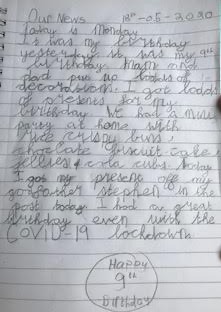 Our News 18th-05-2020
Today is Monday
It was my birthday
yesterday it was my 9th
birthday. Mam and
dad put up loads of
decorations. I got loads
of presents for my
birthday. We had a mini
party at home with
rice crispy buns,
choclate biscuit cake,
jellies + cola cubs. Today
I got my present off my
godfather stephen in the
post today. I had a great
birthday even with the
COVID-19 lockdown.
Happy
9th
Birthday